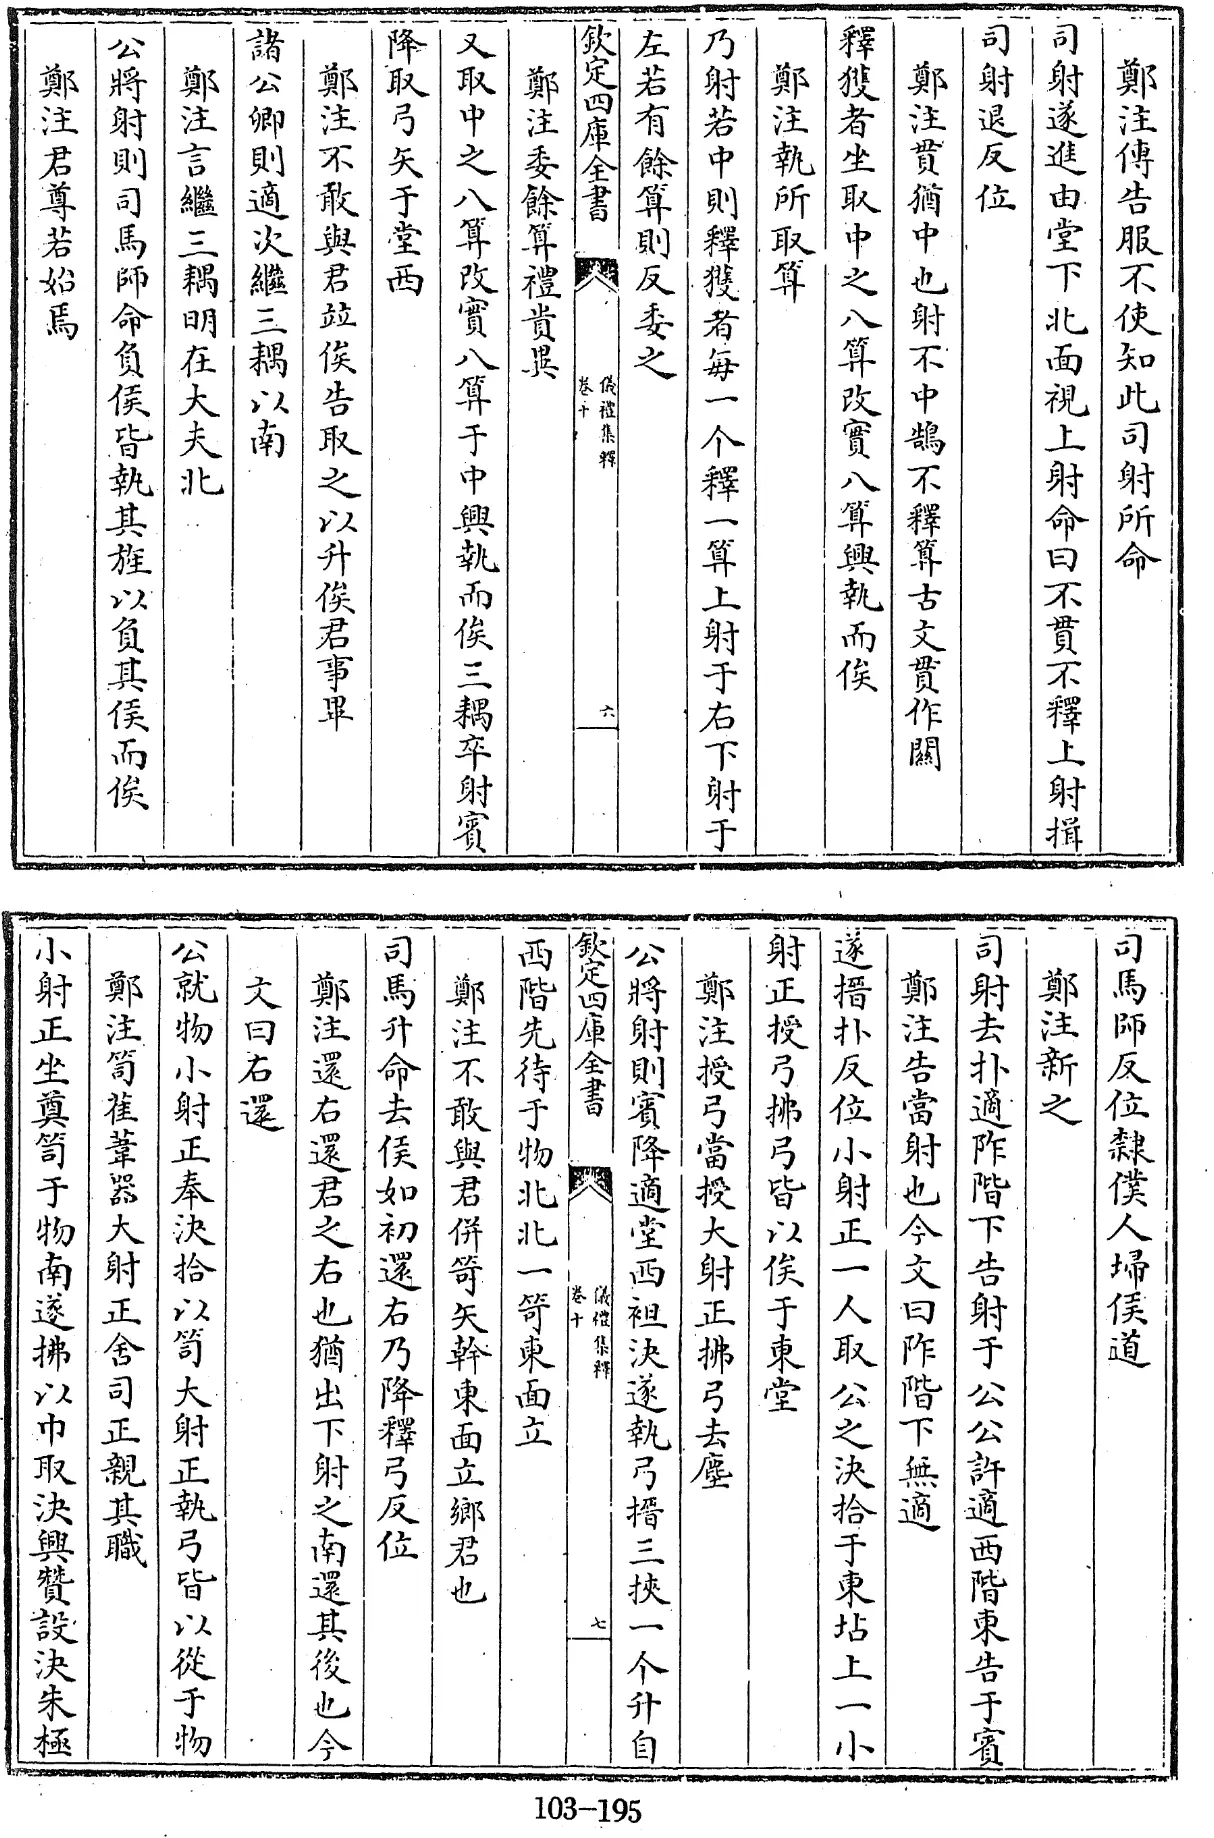 鄭注傳告服不使知此司射所命
司射遂進由堂下北面視上射命曰不貫不釋上射揖
司射退反位
鄭注貫猶中也射不中鵠不釋算古文貫作關
釋獲者坐取中之八算改實八算興執而俟
鄭注執所取算
乃射若中則釋獲者每一个釋一算上射于右下射于
左若有餘算則反委之
欽定四庫全書
儀禮集釋
卷十
六
鄭注委餘算禮貴異
又取中之八算改實八算于中興執而俟三耦卒射賓
降取弓矢于堂西
鄭注不敢與君竝俟告取之以升俟君事畢
諸公卿則適次繼三耦以南
鄭注言繼三耦明在大夫北
公將射則司馬師命負侯皆執其旌以負其侯而俟
鄭注君尊若始焉
司馬師反位隸僕人埽侯道
鄭注新之
司射去扑適阼階下告射于公公許適西階東告于賓
鄭注告當射也今文曰阼階下無適
遂搢扑反位小射正一人取公之決拾于東坫上一小
射正授弓拂弓皆以俟于東堂
鄭注授弓當授大射正拂弓去塵
公將射則賓降適堂西袒決遂執弓搢三挾一个升自
欽定四庫全書
儀禮集釋
卷十
七
西階先待于物北北一笴東面立
鄭注不敢與君併笴矢幹東面立鄉君也
司馬升命去侯如初還右乃降釋弓反位
鄭注還右還君之右也猶出下射之南還其後也今
文曰右還
公就物小射正奉決拾以笥大射正執弓皆以從于物
鄭注笥萑葦器大射正舍司正親其職
小射正坐奠笥于物南遂拂以巾取決興贊設決朱極
103-195